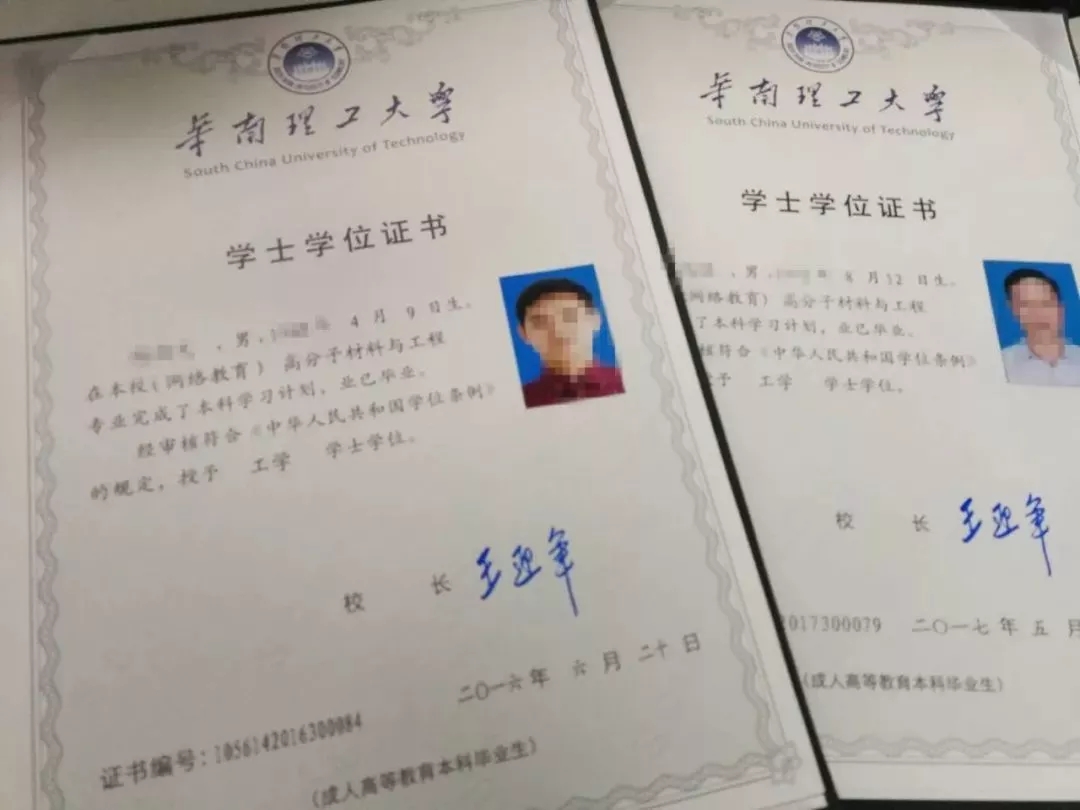 华南理工大学
South China University of Technology
学士学位证书
，男， 4 月 9 日生。
在本校(网络教育) 高分子材料与工程
专业完成了本科学习计划，业已毕业。
经审核符合《中华人民共和国学位条例》
的规定，授予 工学 学士学位。
校 长 王迎军
二〇一六年 六 月 二十 日
证书编号：1056142016300084
(成人高等教育本科毕业生)
华南理工大学
South China University of Technology
学士学位证书
，男， 年 8 月 12 日生。
(网络教育) 高分子材料与工程
了本科学习计划，业已毕业。
核符合《中华人民共和国学位条例》
授予 工学 学士学位。
校 长 王迎军
2017300079 二〇一七年 五 月
(成人高等教育本科毕业生)